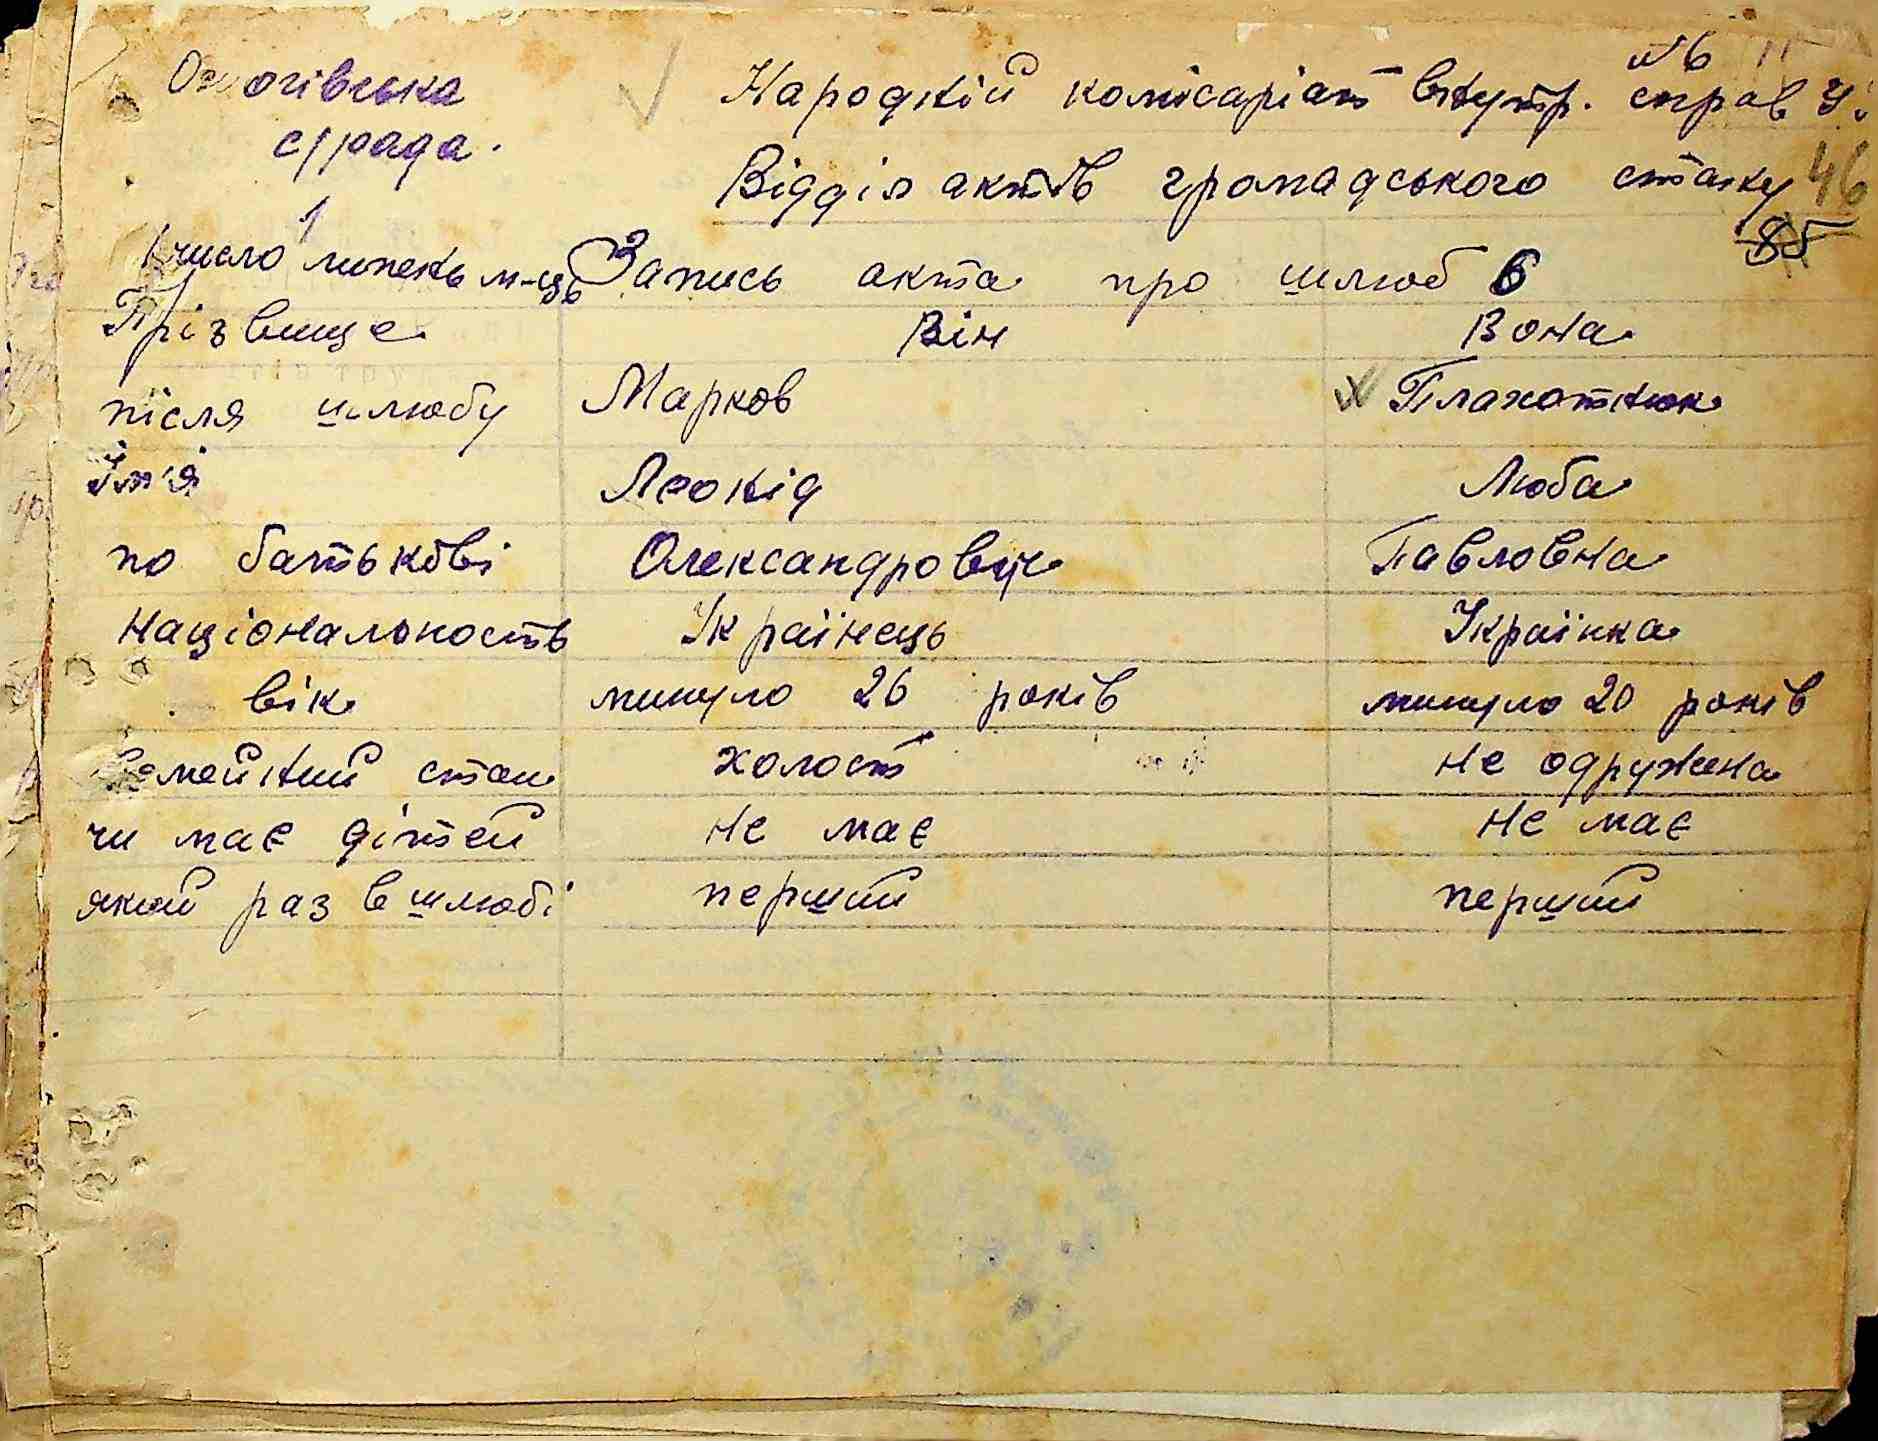 с/рада.
Народній комісаріат внутр. справ У
Відділ актів громадського стану 46
85
1
число липень м-ць Запись акта про шлюб 6
Прізвище Він Вона
після шлюбу Марков Плахотнюк
Ім'я Леонід Люба
по батькові Олександрович Павловна
Національность Українець Українка
вік минуло 26 років минуло 20 років
Семейний стан холост не одружена
чи має дітей не має не має
який раз в шлюбі перший перший